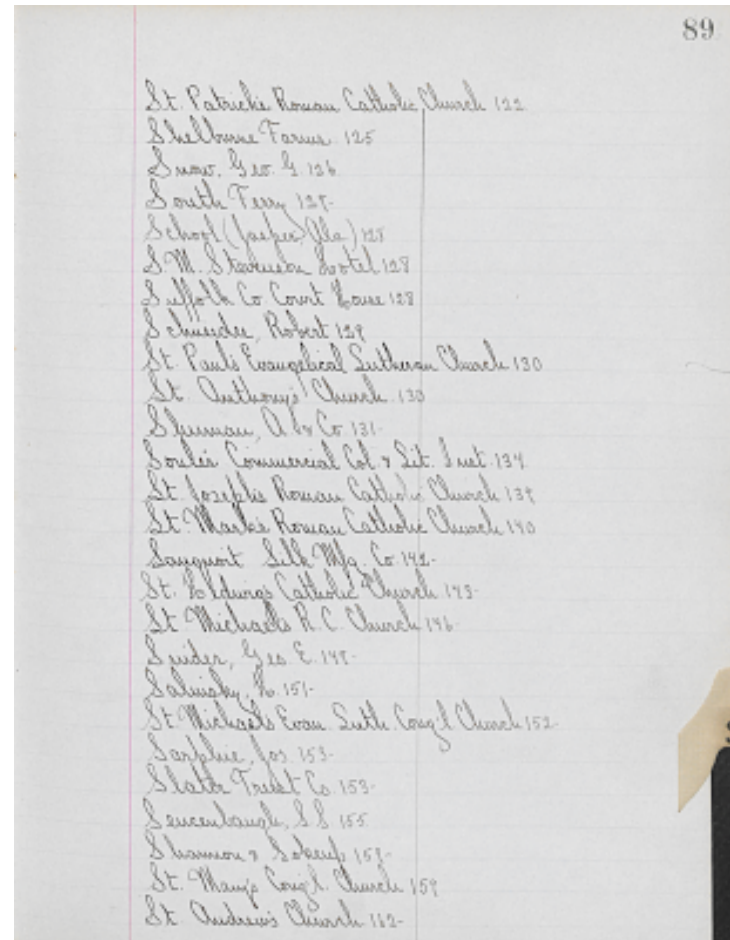 89
St. Patricks Roman Catholic Church 122
Shelburne Farms. 125
Snow, Geo. G. 126
South Ferry 127-
School (Jasper, Ala) 128
S. M. Stevenson Hotel 128
Suffolk Co. Court House 128
Schneider, Robert 129
St. Pauls Evangelical Lutheran Church 130
St. Anthony's Church. 130
Shuman, A. & Co. 131-
Soule's Commercial Col. & Lit. Inst. 134
St. Joseph's Roman Catholic Church 139
St. Mark's Roman Catholic Church 140
Sauquoit Silk Mfg. Co. 142-
St. Hedwigs Catholic Church. 143-
St Michaels R. C. Church 146
Snider, Geo. E. 148-
Salinsky, H. 151-
St. Michaels Evan. Luth. Cong'l Church 152-
Sarphie, Jos. 153-
Slater Trust Co. 153-
S. S. 155
Shannon & 157-
St. Mary's Cong'l. Church 159
St. Andrew's Church 162-